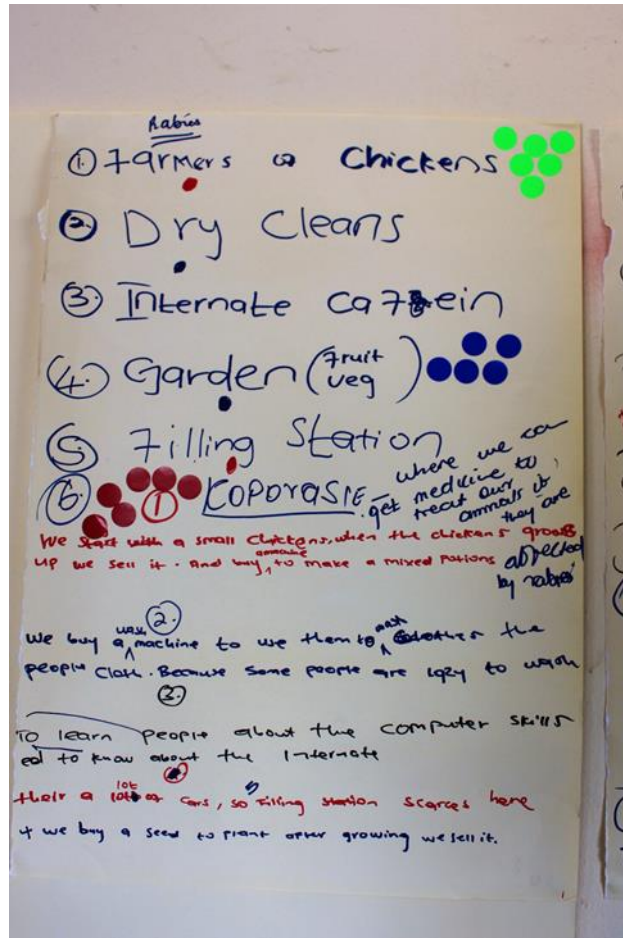 Rabies
1. Farmers Chickens
2. Dry Cleans
3. Internate
4. Garden (Fruit veg)
5. Filling Station
6. KOPORASIE – where we can
get medicine to
treat our
animals if
they are
by rabies
1
We start with a small chickens, when the chickens grows
up we sell it. And buy to make a mixed potions
2.
we buy a wash machine to we them to the
people cloth. Because some people are lazy to wash
3.
To learn people about the computer skills
ed to know about the Internate
their a lot of cars, so Filling station scarces here
4 we buy a seed to plant after growing we sell it.